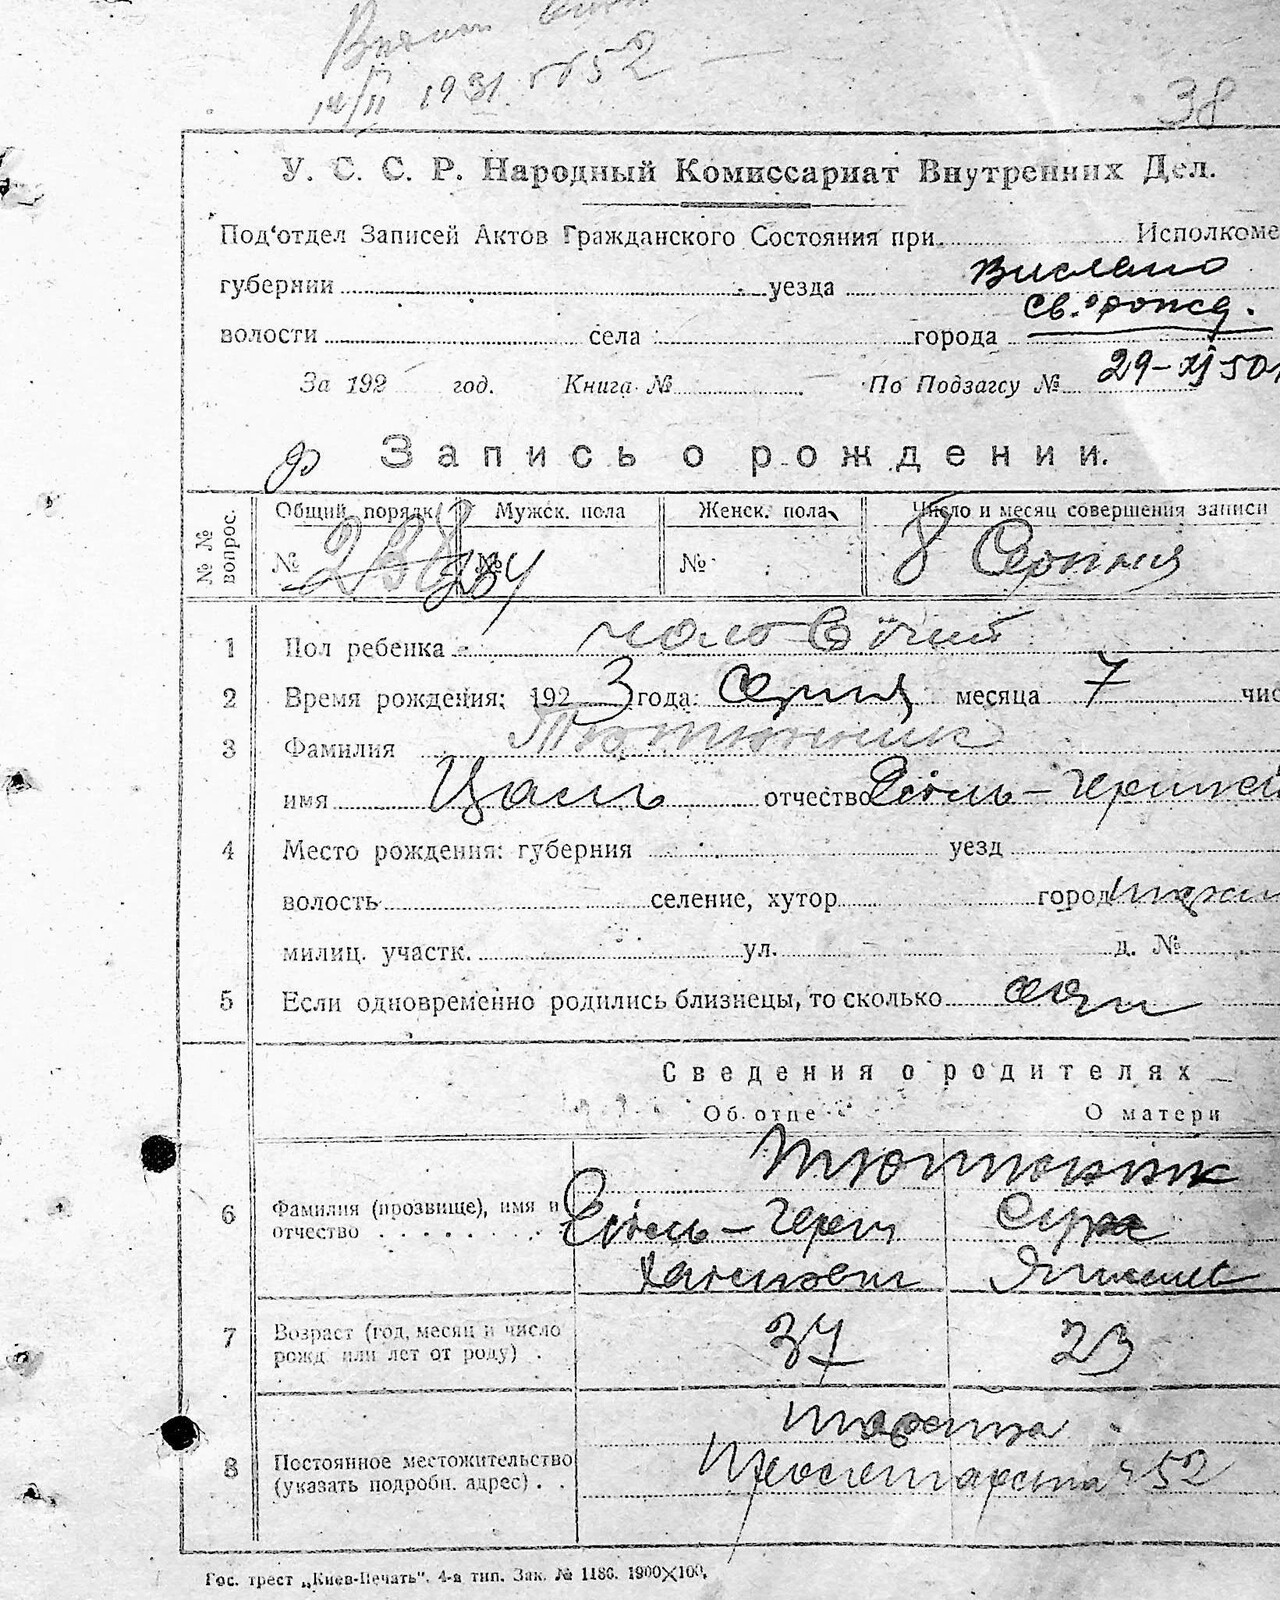 14/II 1931. №52
38
У. С. С. Р. Народный Комиссариат Внутренних Дел.
Под'отдел Записей Актов Гражданского Состояния при Исполкоме
губернии уезда Выслано
волости села города св. о рожд.
За 192 год. Книга № По Подзагсу № 29-XI 50
Запись о рождении.
№№ вопрос. Общий порядк. Мужск. пола Женск. пола Число и месяц совершения записи
№ № 134 № 8 Серпня
1 Пол ребенка чоловічий
2 Время рождения: 1923 года Серпня месяца 7 чис
3 Фамилия Тютюнник
имя отчество
4 Место рождения: губерния уезд
волость селение, хутор город
милиц. участк. ул. д. №
5 Если одновременно родились близнецы, то сколько один
Сведения о родителях
Об отце О матери
Тютюнник
6 Фамилия (прозвище), имя и отчество Сура
7 Возраст (год, месяц и число рожд или лет от роду) 37 23
8 Постоянное местожительство (указать подробн. адрес)
Пролетарська 52
Гос. трест „Киев-Печать". 4-а тип. Зак. № 1186. 1900X100.